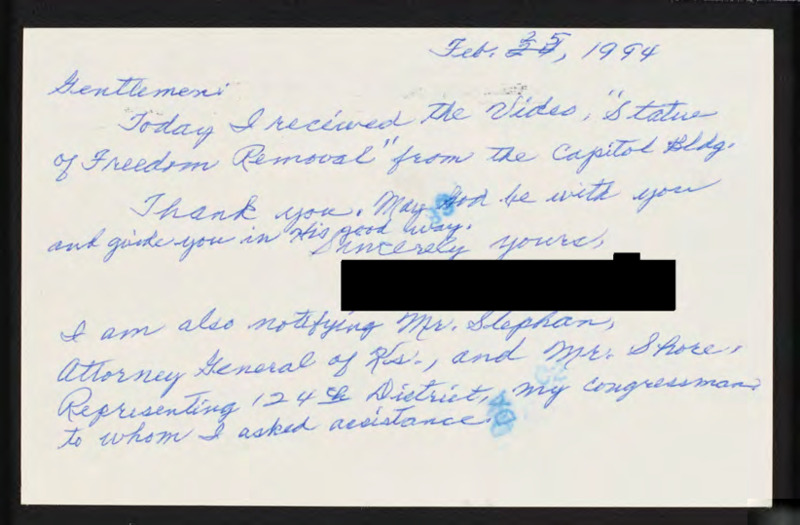 Feb. 25, 1994
Gentlemen:
Today I received the Video, "Statue
of Freedom Removal" from the Capitol Bldg.
Thank you. May God be with you
and guide you in His good way.
Sincerely yours,
I am also notifying Mr. Stephan,
Attorney General of Ks., and Mr. Shore,
Representing 124th District, my congressman
to whom I asked assistance.